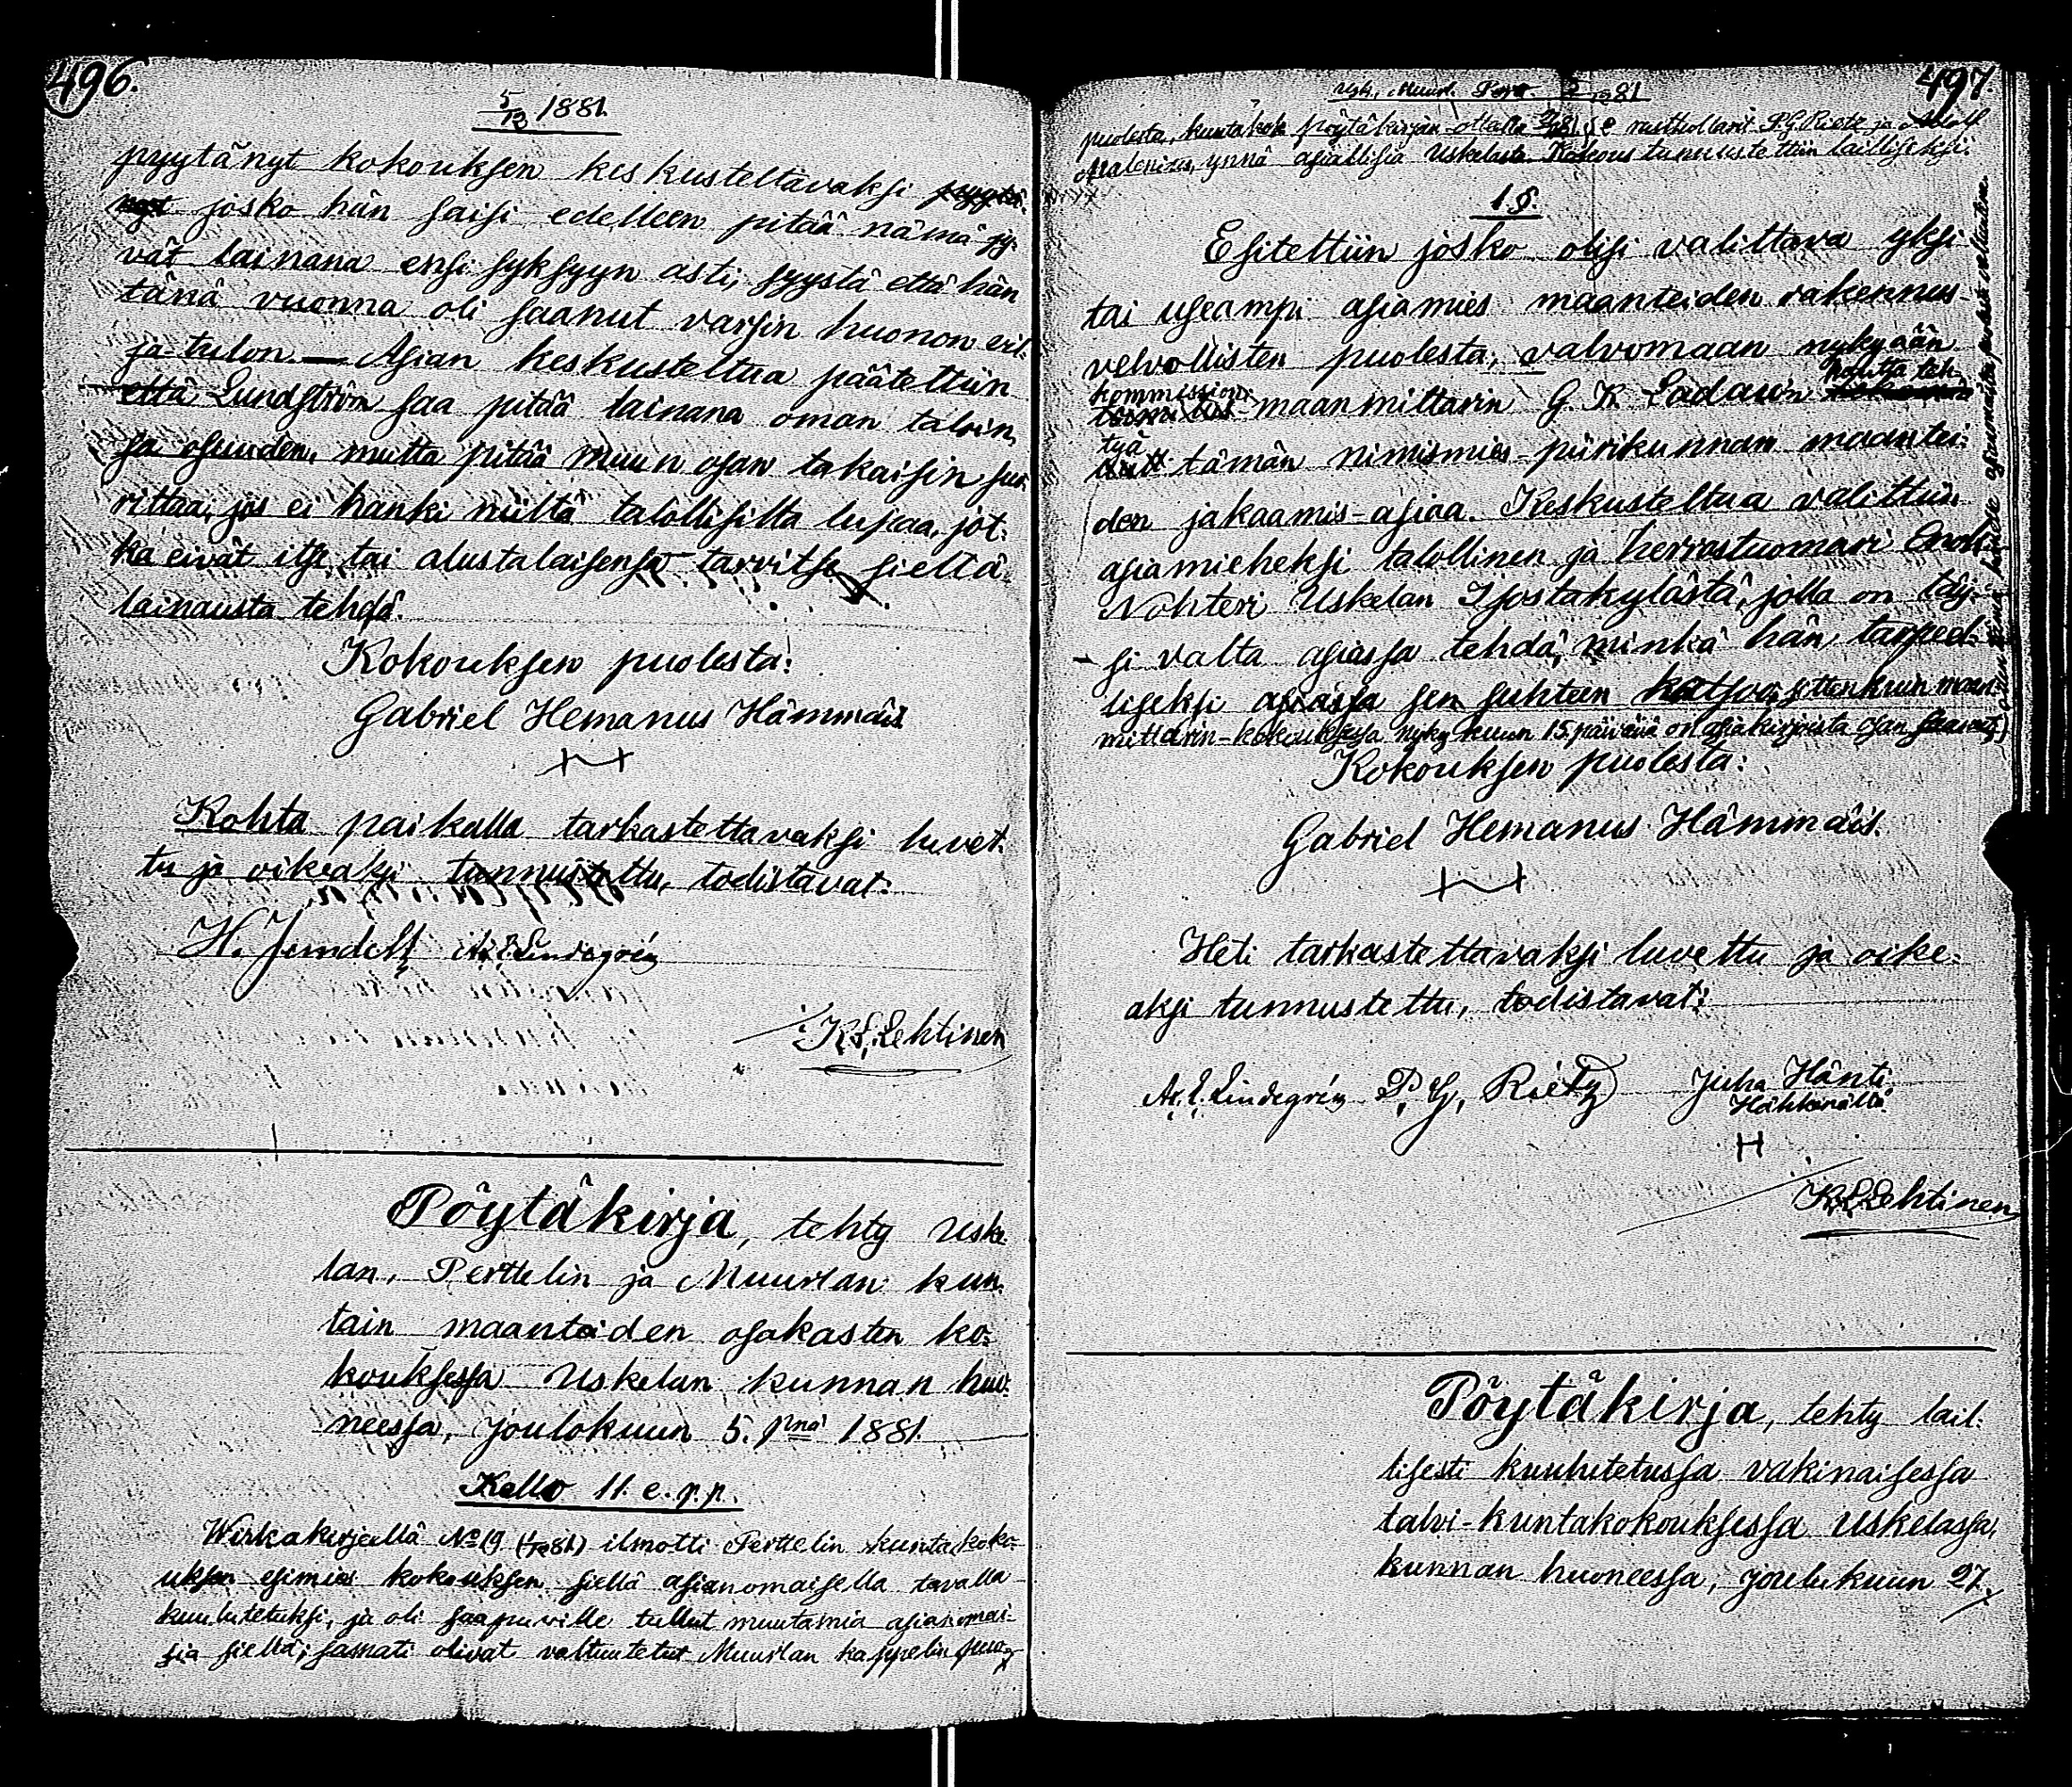 496.
5/12 1881.
pyytänyt kokouksen keskusteltavaksi pyytä-
nyt josko hän saisi edelleen pitää nämä jy-
vät lainana ensi syksyyn asti, syystä että hän
tänä vuonna oli saanut varsin huonon vil-
ja-tulon. — Asian keskusteltua päätettiin
että Lundström saa pitää lainana oman talvin,
sa osuuden, mutta pitää muun osan takaisin suo-
rittaa, jos ei hanki niiltä talollisilta lupaa, jot-
ka eivät itse tai alustalaisensa tarvitse sieltä
lainausta tehdä.
Kokouksen puolesta:
Gabriel Hemanus Hämmäis
Kohta paikalla tarkastettavaksi luvet-
tu ja oikeaksi tunnustettu, todistavat:
H. Lindegrén
K. L. Lehtinen
Pöytäkirja, tehty Uske-
lan, Perttelin ja Muurlan kun-
tain maanteiden osakasten ko-
kouksessa Uskelan kunnan huo-
neessa, Joulokuun 5. pnä 1881.
Kello 11. e.p.p.
Wirkakirjeellä No 19 (1/12 81) ilmotti Perttelin kuntakoko-
uksen esimies kokouksen siellä asianomaisella tavalla
kuulutetuksi, ja oli saapuville tullut muutamia asianomai-
sia sieltä; samati olivat valtuutetut Muurlan kappelin puo-
497.
Usk., Muurl. Pert. 5/12 81
puolesta, kuntakok. pöytäkirjan-ottalla rusthollarit P. G. Rietz ja Adolf
Malenius, ynnä asiallisia Uskelasta. Kokous tunnustettiin lailliseksi.
1 §.
Esitettiin josko olisi valittava yksi
tai useampi asiamies maanteiden rakennus-
velvollisten puolesta, valvomaan nykyään
kommissioni-maanmittarin G. K. Ladau'n kautta teh-
tyä tämän nimismies-piirikunnan maantei-
den jakaamis-asiaa. Keskusteltua valittiin
asiamieheksi talollinen ja herrastuomari
Nohteri Uskelan Isostakylästä, jolla on täy-
si valta asiassa tehdä, minkä hän tarpeel-
liseksi asiassa sen suhteen katsoo, sittenkuin maan-
mittarin-kokouksessa nyky kuun 15. päivänä on asiakirjoista osan saanut,
Kokouksen puolesta:
Gabriel Hemanus Hämmäis.
Heti tarkastettavaksi luvettu ja oike-
aksi tunnustettu, todistavat:
Lindegrén P. G. Rietz Juha Hänti
Hähkänältä
H
K. L. Lehtinen
Pöytäkirja, tehty lail-
lisesti kuulutetussa vakinaisessa
talvi-kuntakokouksessa Uskelassa,
kunnan huoneessa, Joulukuun 27